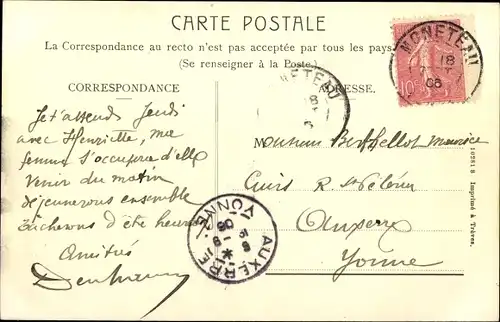 CARTE POSTALE
La Correspondance au recto n'est pas acceptée par tous les pays
(Se renseigner à la Poste.)
CORRESPONDANCE
ADRESSE.
MONETEAU
18
MONETEAU
10
Je t'attends Jeudi
avec Henriette, ma
femme s'occupera d'elle
Venir du matin
déjeunerons ensemble
Tâcherons d'être heureux
Amitiés
Monsieur Berthellot Maurice
Cuirs R. St Pélerin
Auxerre
Yonne
AUXERRE
YONNE
10281 B Imprimé à Trèves.